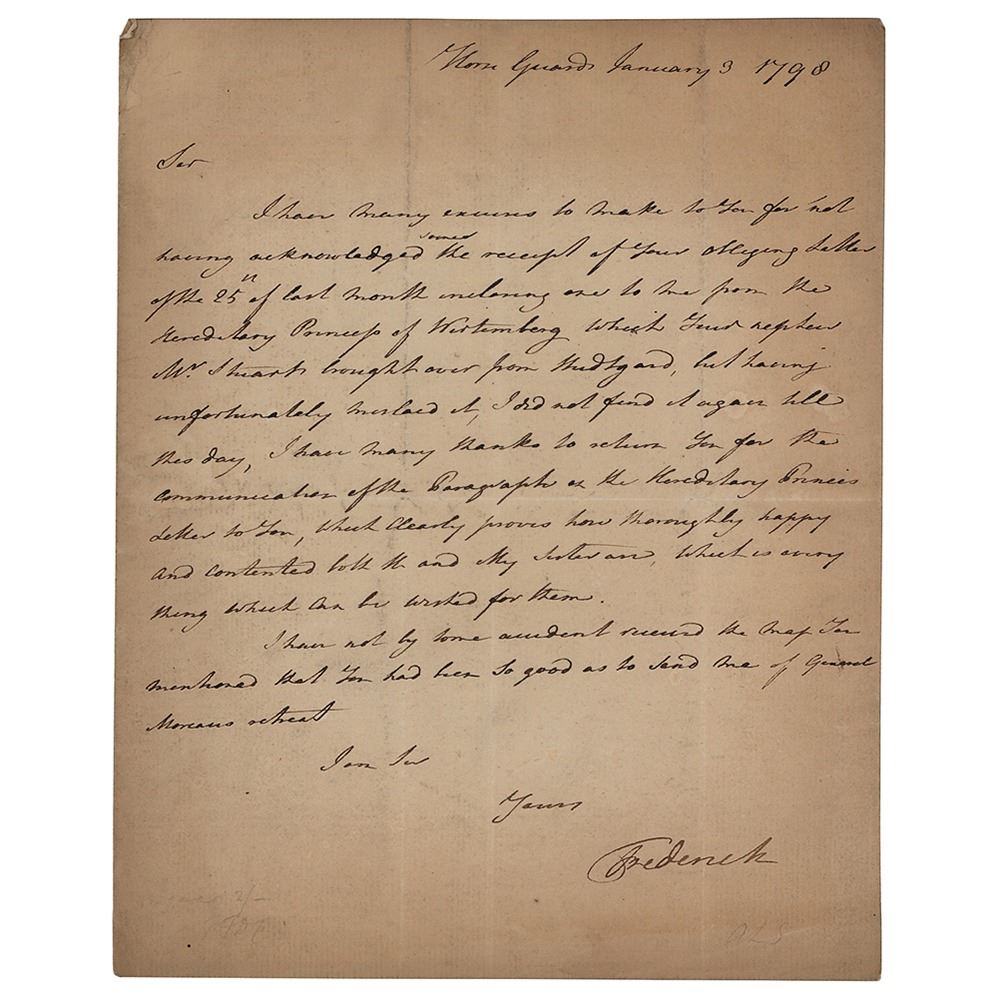 Horse Guards January 3 1798
Sir
I have many excuses to make to You for not
having acknowledged sooner the receipt of Your obliging Letter
of the 25th of last month inclosing one to me from the
Hereditary Princess of Wirtemberg which Your nephew
Mr. Stuart brought over from Studtgard, but having
unfortunately mislaid it, I did not find it again till
this day, I have many thanks to return You for the
communication of the Paragraph in the Hereditary Princes
Letter to You, which clearly proves how thoroughly happy
and contented both He and My Sister are, which is every
thing which can be wished for them.
I have not by some accident received the map You
mentioned that You had been so good as to send me of General
Moreaus retreat
I am Sir
Yours
Frederick
2/-
ALS